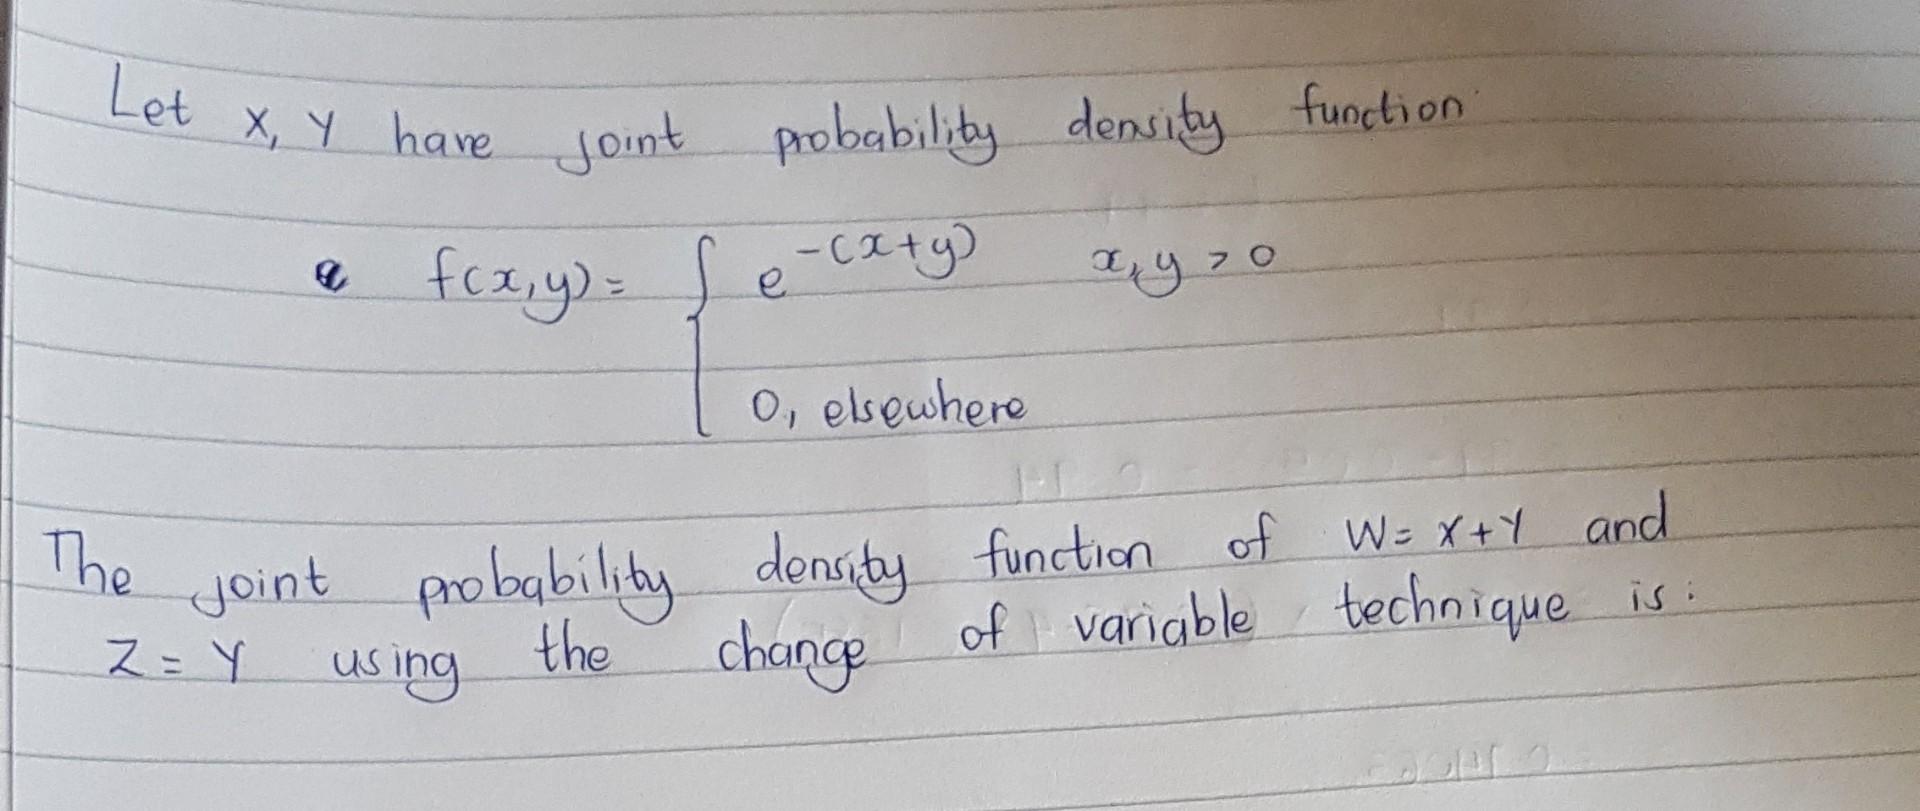 Let X, Y have joint probability density function
f(x,y) = { e^-(x+y) x,y > 0
0, elsewhere
The joint probability density function of W = X + Y and
Z = Y using the change of variable technique is: